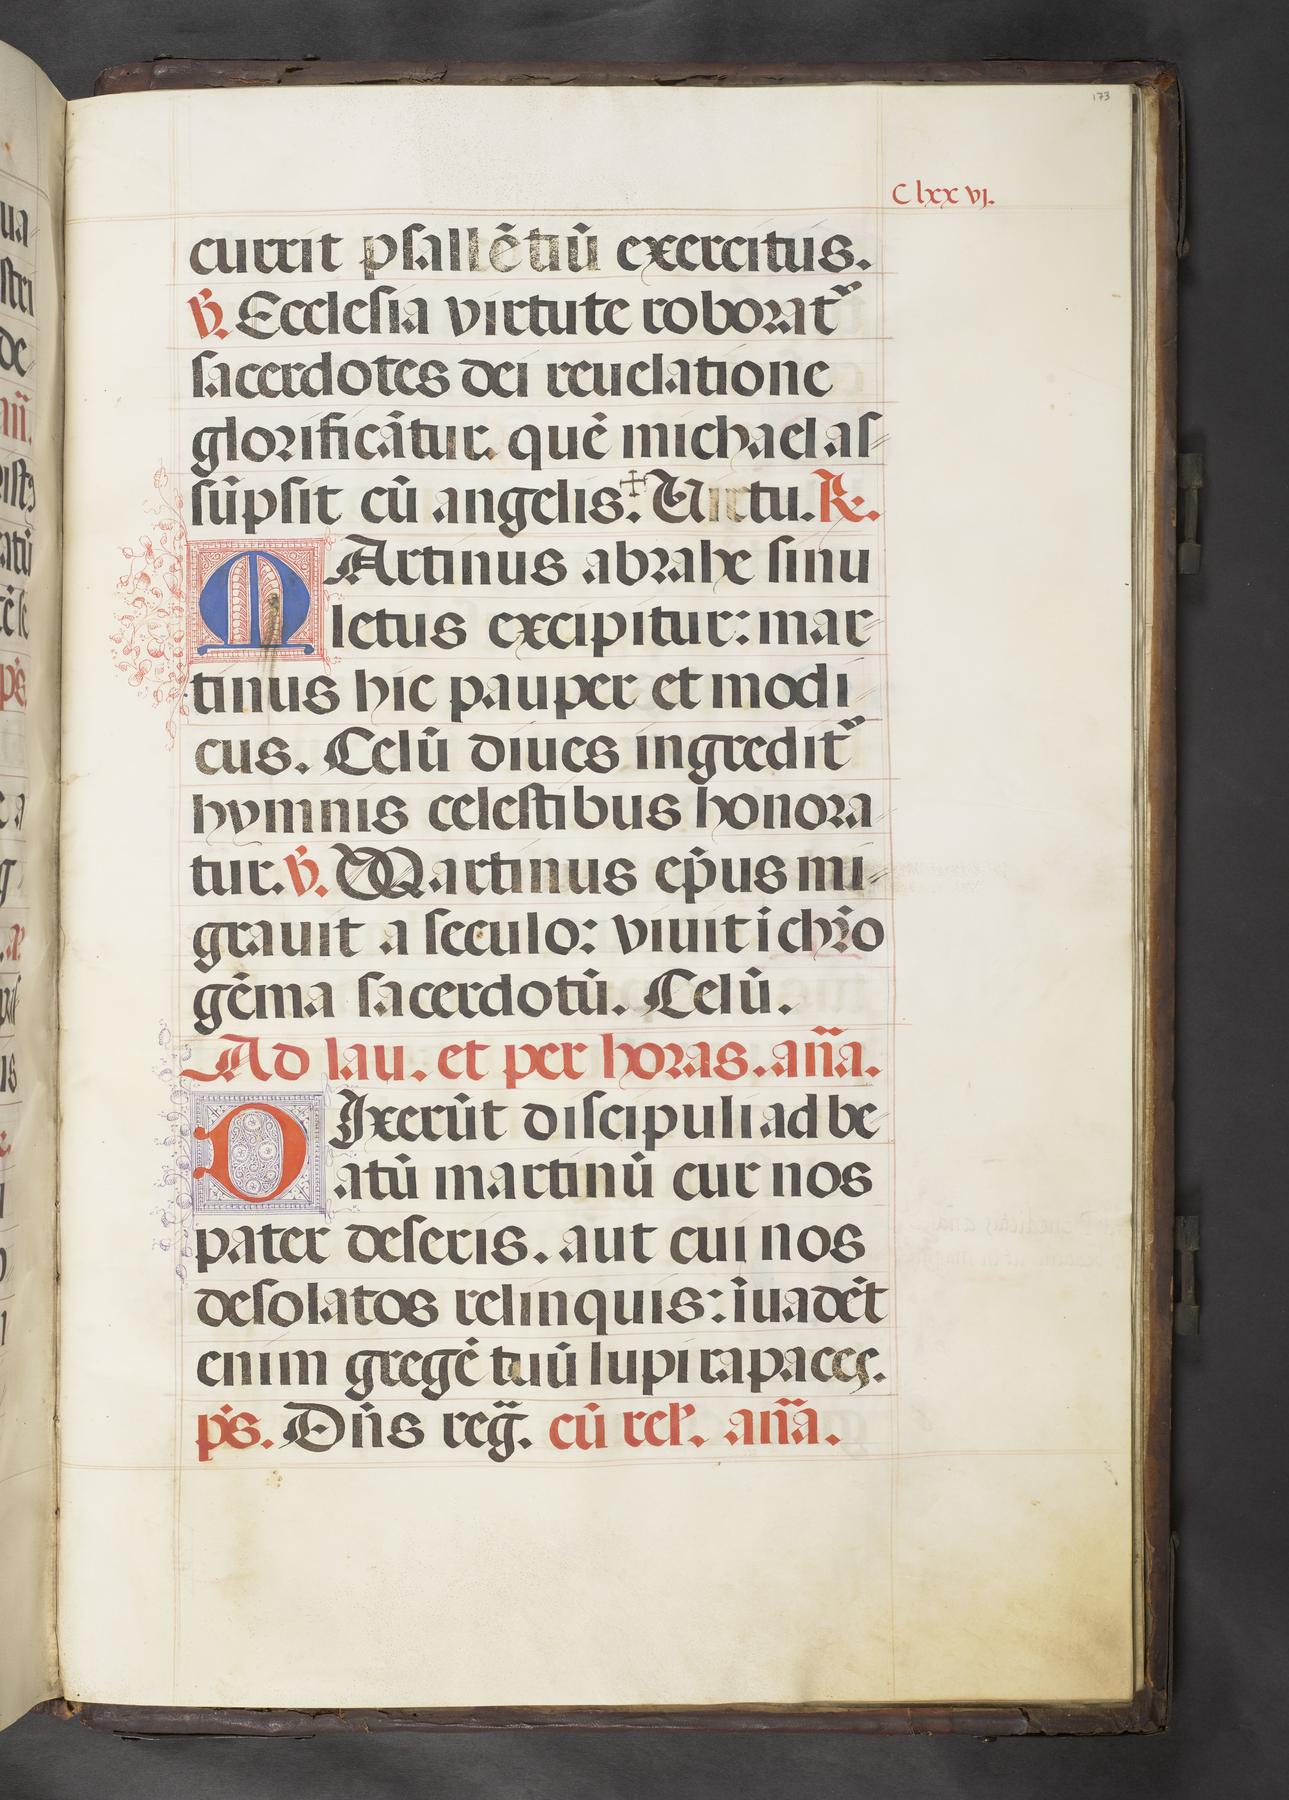 173
C lxx vj.
currit psallētiū exercitus.
℣. Ecclesia virtute roborat᷑
sacerdotes dei reuelatione
glorificātur. quē michael as-
sūpsit cū angelis. Uirtu. ℟.
MArtinus abrahe sinu
letus excipitur: mar-
tinus hic pauper et modi
cus. Celū diues ingredit᷑
hymnis celestibus honora
tur. ℣. Martinus ep̄us mi-
grauit a seculo: viuit ī chr̄o
gēma sacerdotū. Celū.
Ad lau. et per horas. an̄a.
DIxerūt discipuli ad be
atū martinū cur nos
pater deseris. aut cui nos
desolatos relinquis: īuadēt
enim gregē tuū lupi rapaces.
p̄s. Dn̄s reḡ. cū rel'. an̄a.